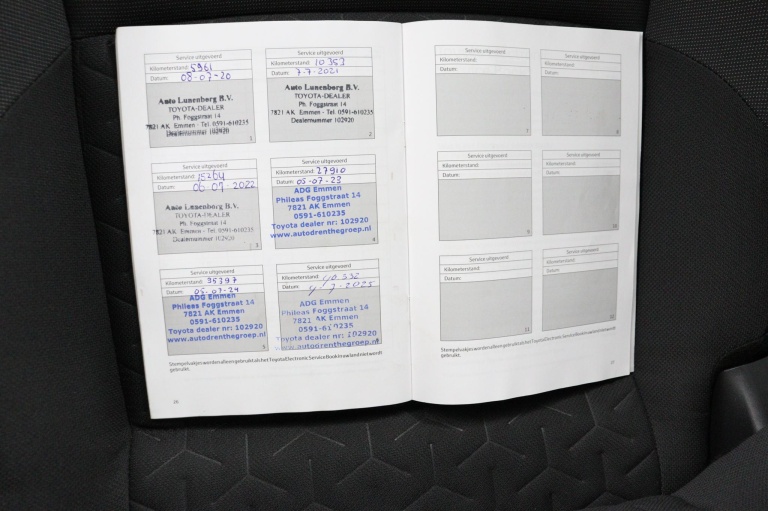 Service uitgevoerd
Kilometerstand: 5961
Datum: 08-07-20
Auto Lunenborg B.V.
TOYOTA-DEALER
Ph. Foggstraat 14
7821 AK Emmen - Tel. 0591-610235
Dealernummer 102920
1
Service uitgevoerd
Kilometerstand: 10353
Datum: 7-7-2021
Auto Lunenborg B.V.
TOYOTA-DEALER
Ph. Foggstraat 14
7821 AK Emmen - Tel. 0591-610235
Dealernummer 102920
2
Service uitgevoerd
Kilometerstand: 15264
Datum: 06-07-2022
Auto Lunenborg B.V.
TOYOTA-DEALER
Ph. Foggstraat 14
7821 AK Emmen - Tel. 0591-610235
Dealernummer 102920
3
Service uitgevoerd
Kilometerstand: 27910
Datum: 05-07-23
ADG Emmen
Phileas Foggstraat 14
7821 AK Emmen
0591-610235
Toyota dealer nr: 102920
www.autodrenthegroep.nl
4
Service uitgevoerd
Kilometerstand: 35397
Datum: 05-07-24
ADG Emmen
Phileas Foggstraat 14
7821 AK Emmen
0591-610235
Toyota dealer nr: 102920
www.autodrenthegroep.nl
5
Service uitgevoerd
Kilometerstand:
Datum: 7-2025
ADG Emmen
Phileas Foggstraat 14
7821 AK Emmen
0591-610235
Toyota dealer nr: 102920
www.autodrenthegroep.nl
Stempelvakjes worden alleen gebruikt als het Toyota Electronic Service Book in uw land niet wordt
gebruikt.
26
Service uitgevoerd
Kilometerstand:
Datum:
7
Service uitgevoerd
Kilometerstand:
Datum:
8
Service uitgevoerd
Kilometerstand:
Datum:
9
Service uitgevoerd
Kilometerstand:
Datum:
10
Service uitgevoerd
Kilometerstand:
Datum:
11
Service uitgevoerd
Kilometerstand:
Datum:
12
Stempelvakjes worden alleen gebruikt als het Toyota Electronic Service Book in uw land niet wordt
gebruikt.